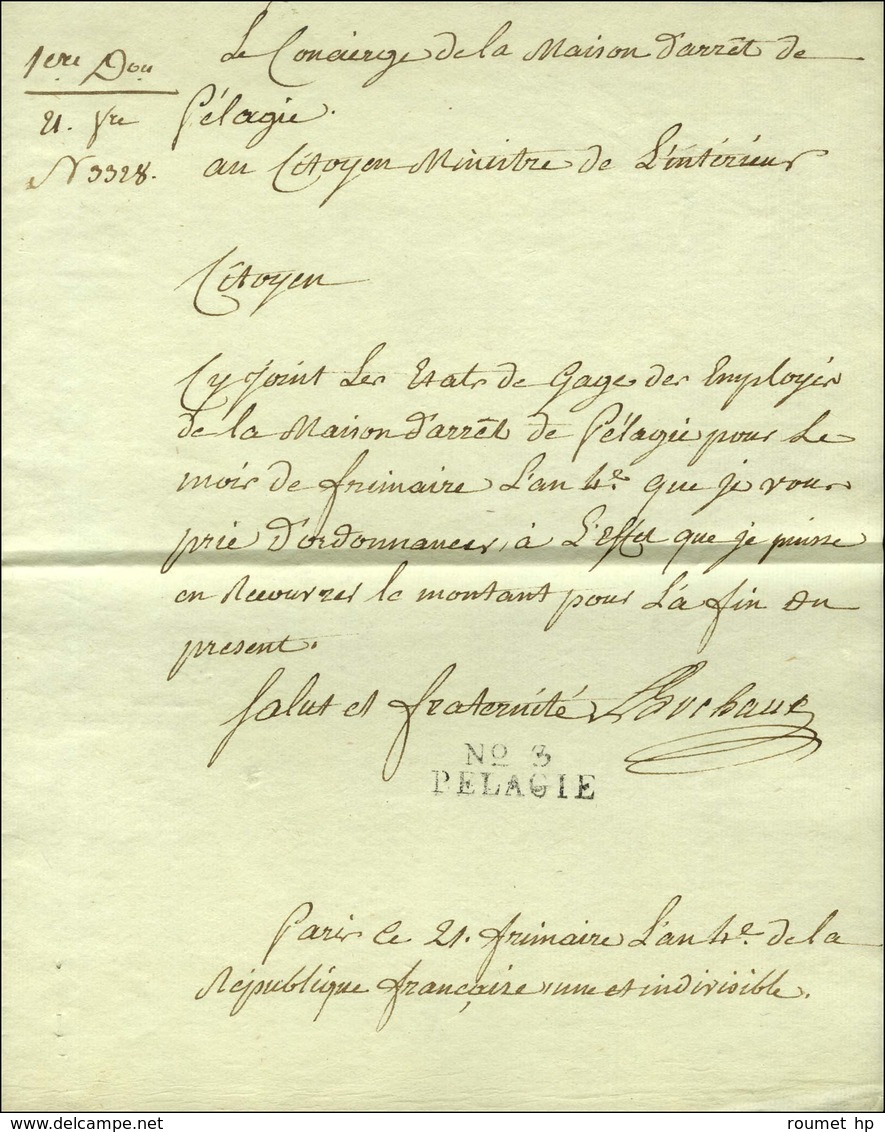 1ere Don
21. fre
N 3328.
Le Concierge de la Maison d'arrêt de
Pélagie.
au Citoyen Ministre de L'intérieur
Citoyen
Cy joint Les Etats de Gage des Employés
de la Maison d'arrêt de Pélagie pour Le
mois de frimaire L'an 4e. que je vous
prie d'ordonnancer, à L'effet que je puisse
en Recouvrer le montant pour La fin du
present.
Salut et fraternité
No 3
PELAGIE
Paris ce 21. frimaire L'an 4e. de la
République française une et indivisible.
www.delcampe.net
roumet hp